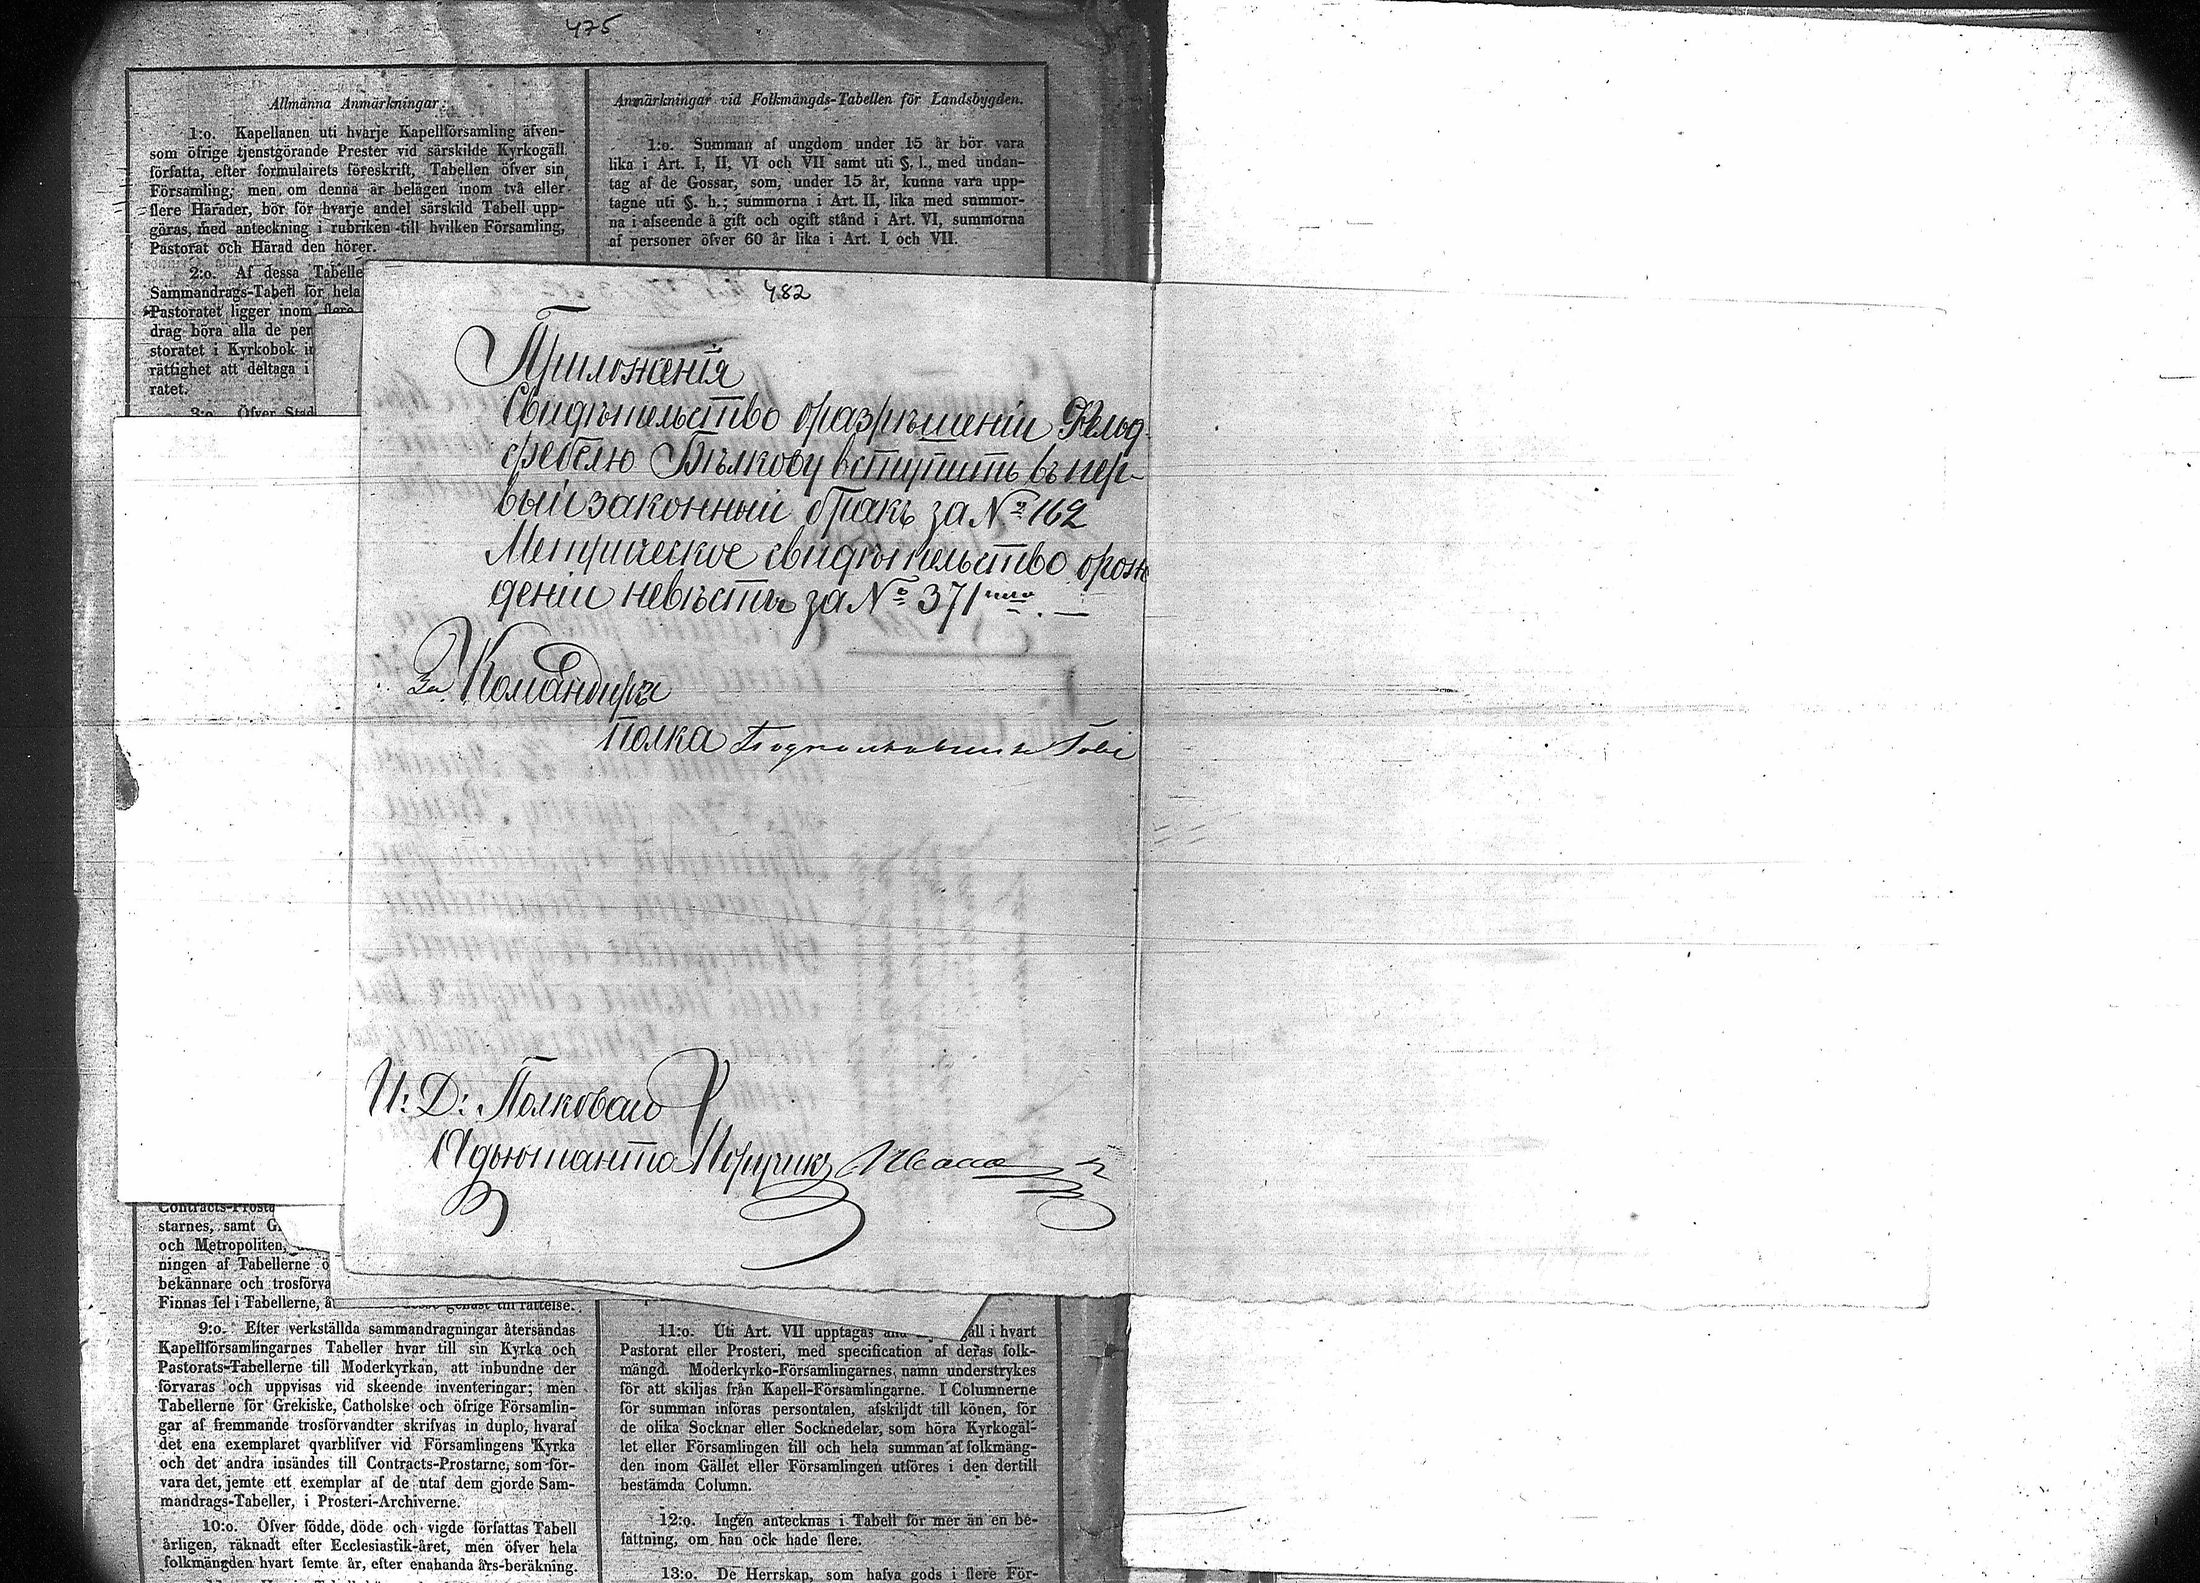 475
Allmänna Anmärkningar:
1:o. Kapellanen uti hvarje Kapellförsamling äfven-
som öfrige tjenstgörande Prester vid särskilde Kyrkogäll
författa, efter formulairets föreskrift, Tabellen öfver sin
Församling; men om denna är belägen inom två eller
flere Härader, bör för hvarje andel särskild Tabell upp-
göras, med anteckning i rubriken till hvilken Församling,
Pastorat och Härad den hörer.
2:o. Af dessa Tabelle
Sammandrags-Tabell för hela
Pastoratet ligger inom flere
drag böra alla de per
storatet i Kyrkobok i
rättighet att deltaga i
ratet.
3:o. Öfver Stad
Anmärkningar vid Folkmängds-Tabellen för Landsbygden.
1:o. Summan af ungdom under 15 år bör vara
lika i Art. I, II, VI och VII samt uti §. l., med undan-
tag af de Gossar, som, under 15 år, kunna vara upp-
tagne uti §. h.; summorna i Art. II, lika med summor-
na i afseende å gift och ogift stånd i Art. VI, summorna
af personer öfver 60 år lika i Art. I och VII.
482
Приложенія
Свидѣтельство о разрѣшеніи Фельд
фебелю Бѣлкову вступить въ пер-
вый законный бракъ за № 162
Метрическое свидѣтельство о рож
деніи невѣсты за № 371
За Командира
полка Подполковникъ
И: Д: Полковаго
Адъютанта Поручикъ
Contracts-Prosta
starnes, samt G
och Metropoliten,
ningen af Tabellerne ö
bekännare och trosförva
Finnas fel i Tabellerne, å genast till rättelse.
9:o. Efter verkställda sammandragningar återsändas
Kapellförsamlingarnes Tabeller hvar till sin Kyrka och
Pastorats-Tabellerne till Moderkyrkan, att inbundne der
förvaras och uppvisas vid skeende inventeringar; men
Tabellerne för Grekiske, Catholske och öfrige Församlin-
gar af fremmande trosförvandter skrifvas in duplo, hvaraf
det ena exemplaret qvarblifver vid Församlingens Kyrka
och det andra insändes till Contracts-Prostarne, som för-
vara det, jemte ett exemplar af de utaf dem gjorde Sam-
mandrags-Tabeller, i Prosteri-Archiverne.
10:o. Öfver födde, döde och vigde författas Tabell
årligen, räknadt efter Ecclesiastik-året, men öfver hela
folkmängden hvart femte år, efter enahanda års-beräkning.
11:o. Uti Art. VII upptagas gäll i hvart
Pastorat eller Prosteri, med specification af deras folk-
mängd. Moderkyrko-Församlingarnes namn understrykes
för att skiljas från Kapell-Församlingarne. I Columnerne
för summan införas persontalen, afskiljdt till könen, för
de olika Socknar eller Socknedelar, som höra Kyrkogäl-
let eller Församlingen till och hela summan af folkmäng-
den inom Gället eller Församlingen utföres i den dertill
bestämda Column.
12:o. Ingen antecknas i Tabell för mer än en be-
fattning, om han ock hade flere.
13:o. De Herrskap, som hafva gods i flere För-